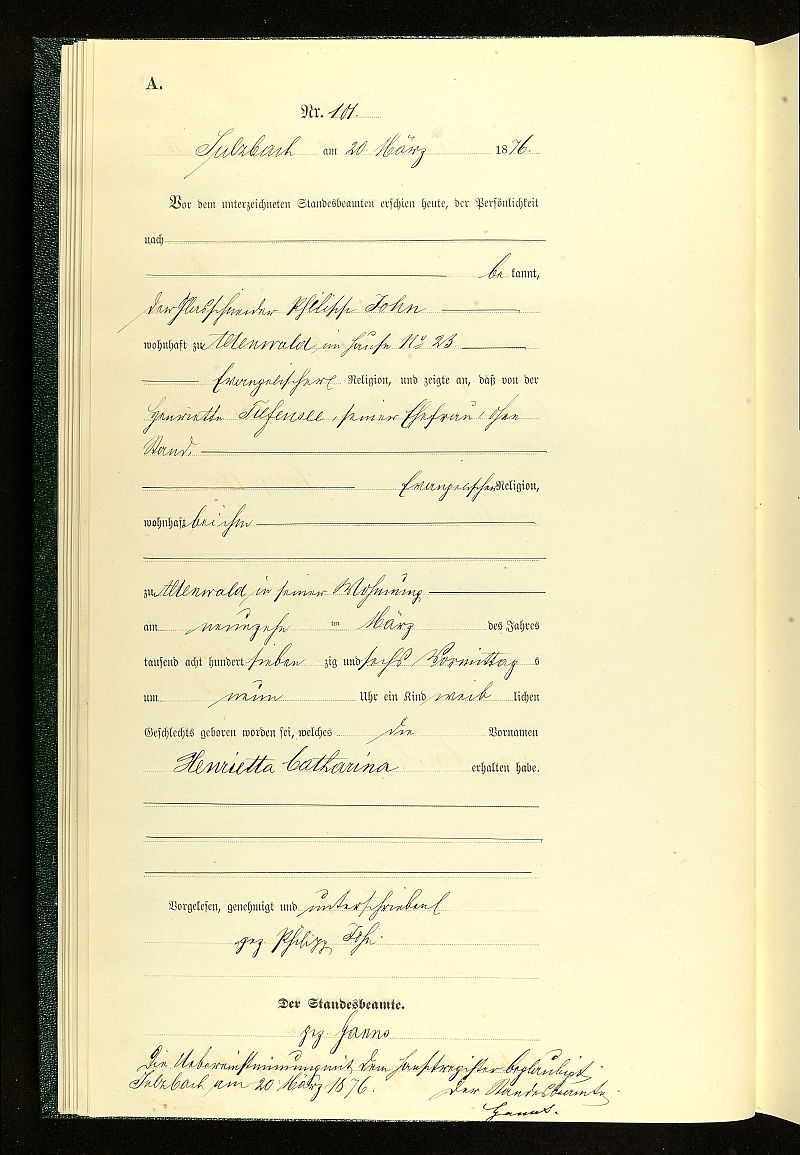 A.
Nr. 101.
Sulzbach am 20. März 1876.
Vor dem unterzeichneten Standesbeamten erschien heute, der Persönlichkeit
nach
be kannt,
der Glasschneider Philipp John
wohnhaft zu Altenwald, im Hause No 23
Evangelischer Religion, und zeigte an, daß von der
Henriette Tiefensee, seiner Ehefrau, ohne
Stand.
Evangelischer Religion,
wohnhaft bei ihm
zu Altenwald in seiner Wohnung
am neunzehn ten März des Jahres
tausend acht hundert sieben zig und sechs Vormittag s
um neun Uhr ein Kind weib lichen
Geschlechts geboren worden sei, welches die Vornamen
Henrietta Catharina erhalten habe.
Vorgelesen, genehmigt und unterschrieben
gez. Philipp John
Der Standesbeamte.
gez.
Die Uebereinstimmung mit dem Hauptregister beglaubigt
Sulzbach am 20 März 1876. Der Standesbeamte